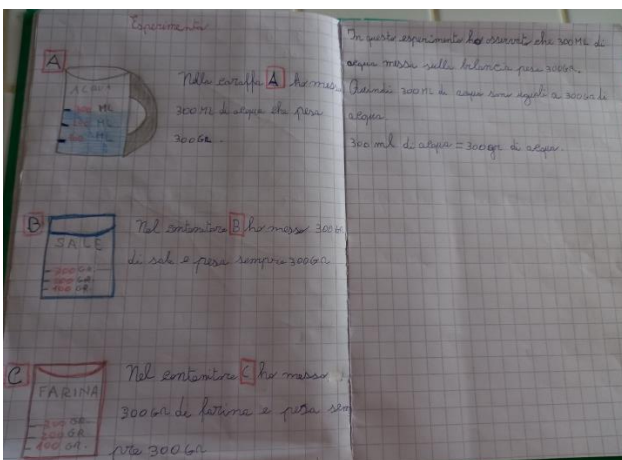 Esperimenti
A
ACQUA
300 ML
200 ML
100 ML
Nella caraffa A ho messo
300 ML di acqua che pesa
300 GR.
B
SALE
300 GR.
200 GR.
100 GR.
Nel contenitore B ho messo 300 GR
di sale e pesa sempre 300 GR
C
FARINA
300 GR.
200 GR.
100 GR.
Nel contenitore C ho messo
300 GR di farina e pesa sem
pre 300 GR
In questo esperimento ho osservato che 300 ML di
acqua messa sulla bilancia pesa 300 GR.
Quindi 300 ML di acqua sono uguali a 300 GR di
acqua.
300 ml di acqua = 300 gr di acqua.